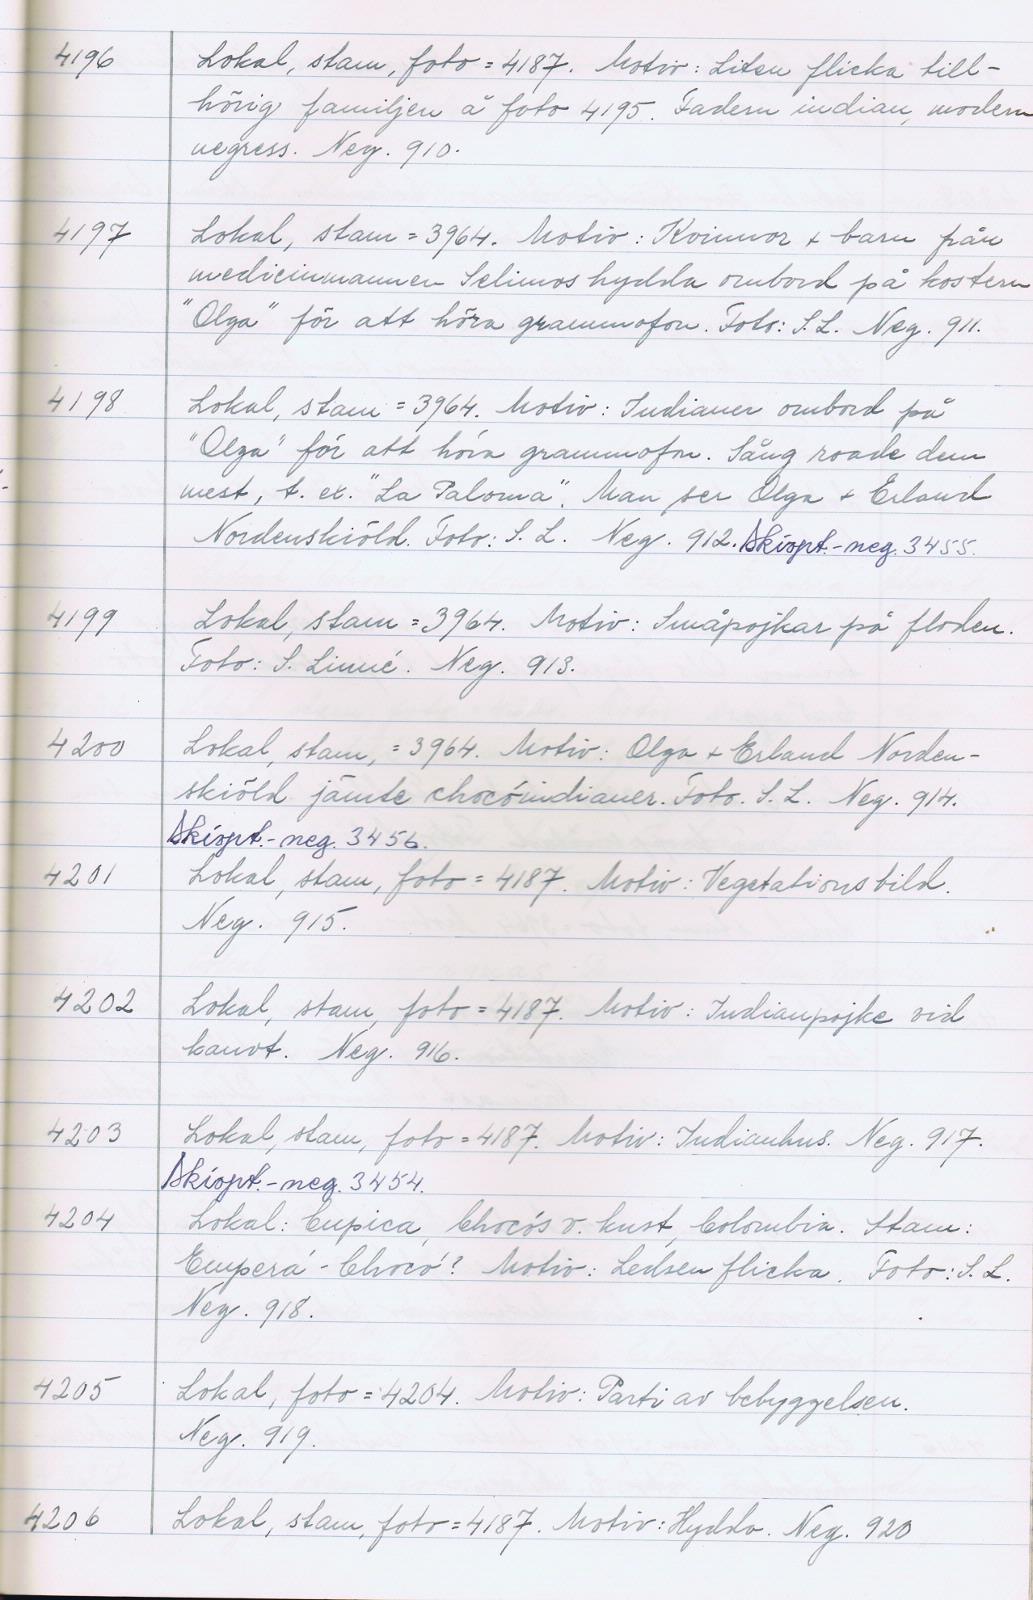 4196 Lokal, stam, foto = 4187. Motiv: Liten flicka till-
hörig familjen å foto 4195. Fadern indian, modern
negress. Neg. 910.
4197 Lokal, stam = 3964. Motiv: Kvinnor + barn från
medicinmannen Selimos hydda ombord på kostern
"Olga" för att höra grammofon. Foto: S. L. Neg. 911.
4198 Lokal, stam = 3964. Motiv: Indianer ombord på
"Olga" för att höra grammofon. Sång roade dem
mest, t. ex. "La Paloma". Man ser Olga + Erland
Nordenskiöld. Foto: S. L. Neg. 912. Skiopt.-neg. 3455.
4199 Lokal, stam = 3964. Motiv: Småpojkar på floden.
Foto: S. Linné. Neg. 913.
4200 Lokal, stam, = 3964. Motiv: Olga + Erland Norden-
skiöld jämte chocóindianer. Foto. S. L. Neg. 914.
Skiopt.-neg. 3456.
4201 Lokal, stam, foto = 4187. Motiv: Vegetationsbild.
Neg. 915.
4202 Lokal, stam, foto = 4187. Motiv: Indianpojke vid
kanot. Neg. 916.
4203 Lokal, stam, foto = 4187. Motiv: Indianhus. Neg. 917.
Skiopt.-neg. 3454.
4204 Lokal: Cupica, Chocós v. kust, Colombia. Stam:
Emperá - Chocó? Motiv: Ledsen flicka. Foto: S. L.
Neg. 918.
4205 Lokal, foto = 4204. Motiv: Parti av bebyggelsen.
Neg. 919.
4206 Lokal, stam, foto = 4187. Motiv: Hydda. Neg. 920